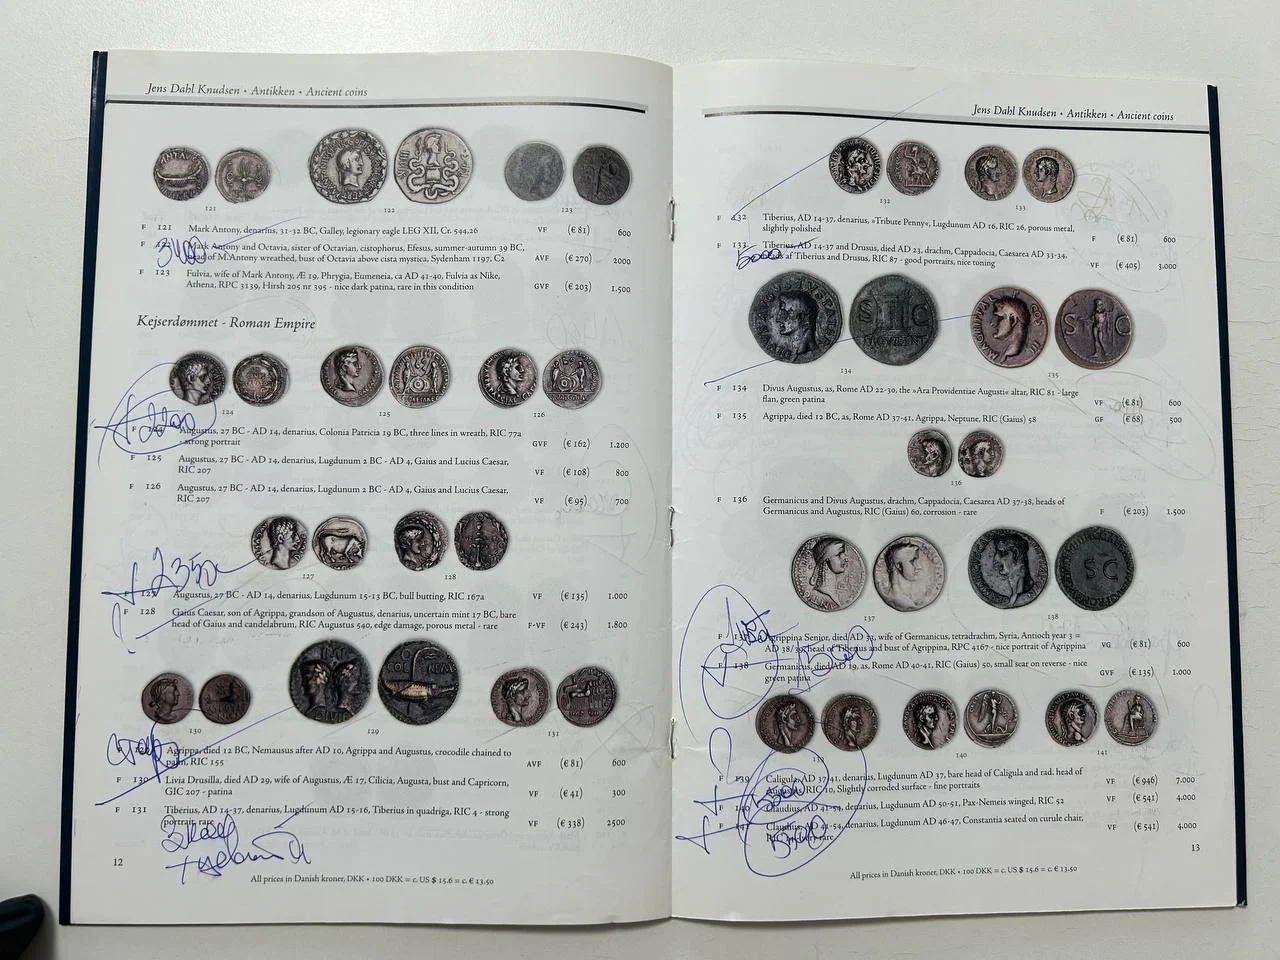 Jens Dahl Knudsen • Antikken • Ancient coins
121
122
123
F 121 Mark Antony, denarius, 31-32 BC, Galley, legionary eagle LEG XII, Cr. 544.26 VF (€ 81) 600
F Mark Antony and Octavia, sister of Octavian, cistophorus, Efesus, summer-autumn 39 BC,
3400
head of M.Antony wreathed, bust of Octavia above cista mystica, Sydenham 1197, C2 AVF (€ 270) 2000
F 123 Fulvia, wife of Mark Antony, Æ 19, Phrygia, Eumeneia, ca AD 41-40, Fulvia as Nike,
Athena, RPC 3139, Hirsh 205 nr 395 - nice dark patina, rare in this condition GVF (€ 203) 1.500
Kejserdømmet - Roman Empire
124
125
126
2200
F Augustus, 27 BC - AD 14, denarius, Colonia Patricia 19 BC, three lines in wreath, RIC 77a
- strong portrait GVF (€ 162) 1.200
F 125 Augustus, 27 BC - AD 14, denarius, Lugdunum 2 BC - AD 4, Gaius and Lucius Caesar,
RIC 207 VF (€ 108) 800
F 126 Augustus, 27 BC - AD 14, denarius, Lugdunum 2 BC - AD 4, Gaius and Lucius Caesar,
RIC 207 VF (€ 95) 700
127
128
+2350
Augustus, 27 BC - AD 14, denarius, Lugdunum 15-13 BC, bull butting, RIC 167a VF (€ 135) 1.000
F 128 Gaius Caesar, son of Agrippa, grandson of Augustus, denarius, uncertain mint 17 BC, bare
head of Gaius and candelabrum, RIC Augustus 540, edge damage, porous metal - rare F-VF (€ 243) 1.800
130
129
131
Agrippa, died 12 BC, Nemausus after AD 10, Agrippa and Augustus, crocodile chained to
palm, RIC 155 AVF (€ 81) 600
F 130 Livia Drusilla, died AD 29, wife of Augustus, Æ 17, Cilicia, Augusta, bust and Capricorn,
GIC 207 - patina VF (€ 41) 300
F 131 Tiberius, AD 14-37, denarius, Lugdunum AD 15-16, Tiberius in quadriga, RIC 4 - strong
portrait, rare VF (€ 338) 2500
12
All prices in Danish kroner, DKK • 100 DKK = c. US $ 15.6 = c. € 13.50
Jens Dahl Knudsen • Antikken • Ancient coins
132
133
F 132 Tiberius, AD 14-37, denarius, »Tribute Penny«, Lugdunum AD 16, RIC 26, porous metal,
slightly polished F (€ 81) 600
F 133 Tiberius, AD 14-37 and Drusus, died AD 23, drachm, Cappadocia, Caesarea AD 33-34,
5000
heads af Tiberius and Drusus, RIC 87 - good portraits, nice toning VF (€ 405) 3.000
134
135
F 134 Divus Augustus, as, Rome AD 22-30, the »Ara Providentiae Augusti« altar, RIC 81 - large
flan, green patina VF (€ 81) 600
F 135 Agrippa, died 12 BC, as, Rome AD 37-41, Agrippa, Neptune, RIC (Gaius) 58 GF (€ 68) 500
136
F 136 Germanicus and Divus Augustus, drachm, Cappadocia, Caesarea AD 37-38, heads of
Germanicus and Augustus, RIC (Gaius) 60, corrosion - rare F (€ 203) 1.500
137
138
F 137 Agrippina Senior, died AD 33, wife of Germanicus, tetradrachm, Syria, Antioch year 3 =
AD 38/39, head of Tiberius and bust of Agrippina, RPC 4167 - nice portrait of Agrippina VG (€ 81) 600
F 138 Germanicus, died AD 19, as, Rome AD 40-41, RIC (Gaius) 50, small scar on reverse - nice
green patina GVF (€ 135) 1.000
139
140
141
F 139 Caligula, AD 37-41, denarius, Lugdunum AD 37, bare head of Caligula and rad. head of
Augustus, RIC 10, Slightly corroded surface - fine portraits VF (€ 946) 7.000
F 140 Claudius, AD 41-54, denarius, Lugdunum AD 50-51, Pax-Nemeis winged, RIC 52 VF (€ 541) 4.000
Claudius, AD 41-54, denarius, Lugdunum AD 46-47, Constantia seated on curule chair, VF (€ 541) 4.000
13
All prices in Danish kroner, DKK • 100 DKK = c. US $ 15.6 = c. € 13.50